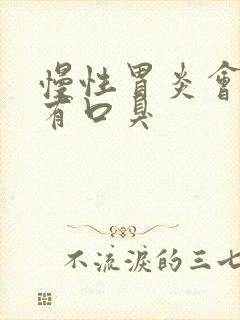 慢性胃炎會
有口臭
不流淚的三七